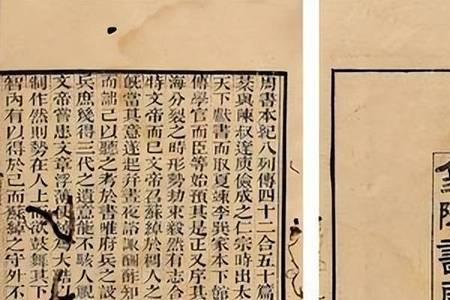 周書本紀八列傳四十二合五十篇
棻與陳叔達庾儉成之仁宗時出太
天下獻書而取夏竦李巽家本下館
傳學官而臣等始預其是正又序其
海分裂之時形勢劫束毅然有志
特文帝而已文帝召蘇綽於稠人之
旣當其意遂起并晝夜諮諏酬酢知
而詘己以聽之考於書唯府兵之設
兵庶幾得三代之遺意能不駭人視
文帝嘗患文章浮薄使 為大誥以
制作然則勢在人上 欲鼓舞其下
智內有以得於己而蘇綽之守外不
金陵書局